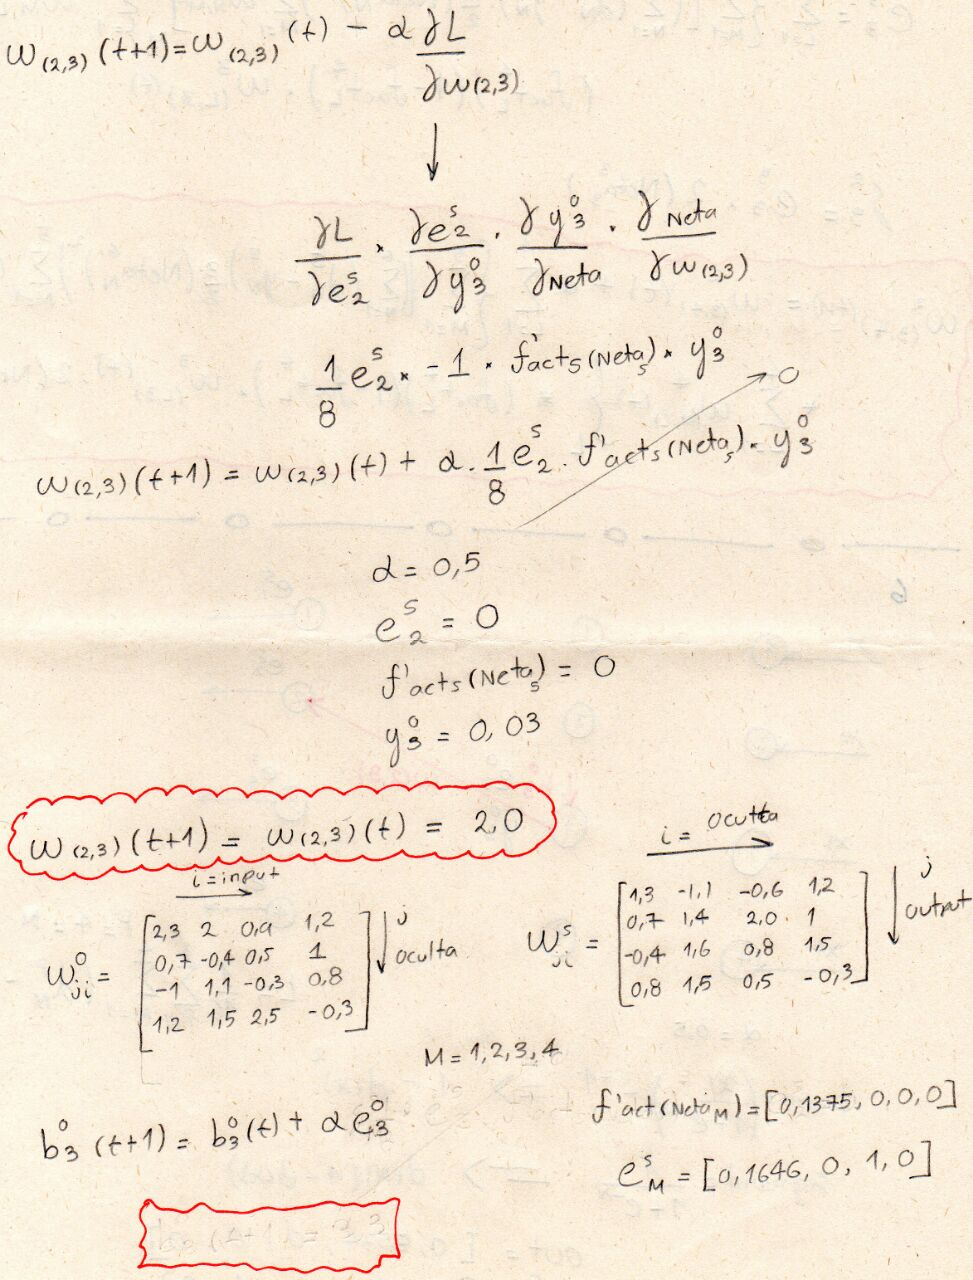 ω(2,3)(t+1)=ω(2,3)(t) - α γL/γω(2,3)
↓
γL/γe₂ˢ × γe₂ˢ/γy₃⁰ · γy₃⁰/γNeta · γNeta/γω(2,3)
1/8 e₂ˢ × -1 · f'acts(Netaₛ) × y₃⁰
0
ω(2,3)(t+1) = ω(2,3)(t) + α · 1/8 e₂ˢ · f'acts(Netaₛ) · y₃⁰
α = 0,5
e₂ˢ = 0
f'acts(Netaₛ) = 0
y₃⁰ = 0,03
ω(2,3)(t+1) = ω(2,3)(t) = 2,0
i = input
ωji⁰ = [2,3 2 0,9 1,2
0,7 -0,4 0,5 1
-1 1,1 -0,3 0,8
1,2 1,5 2,5 -0,3]
j
oculta
i = oculta
ωjiˢ = [1,3 -1,1 -0,6 1,2
0,7 1,4 2,0 1
-0,4 1,6 0,8 1,5
0,8 1,5 0,5 -0,3]
j
output
M = 1,2,3,4
b₃⁰(t+1) = b₃⁰(t) + αe₃⁰
f'act(Netaₘ) = [0,1375, 0, 0, 0]
eₘˢ = [0,1646, 0, 1, 0]